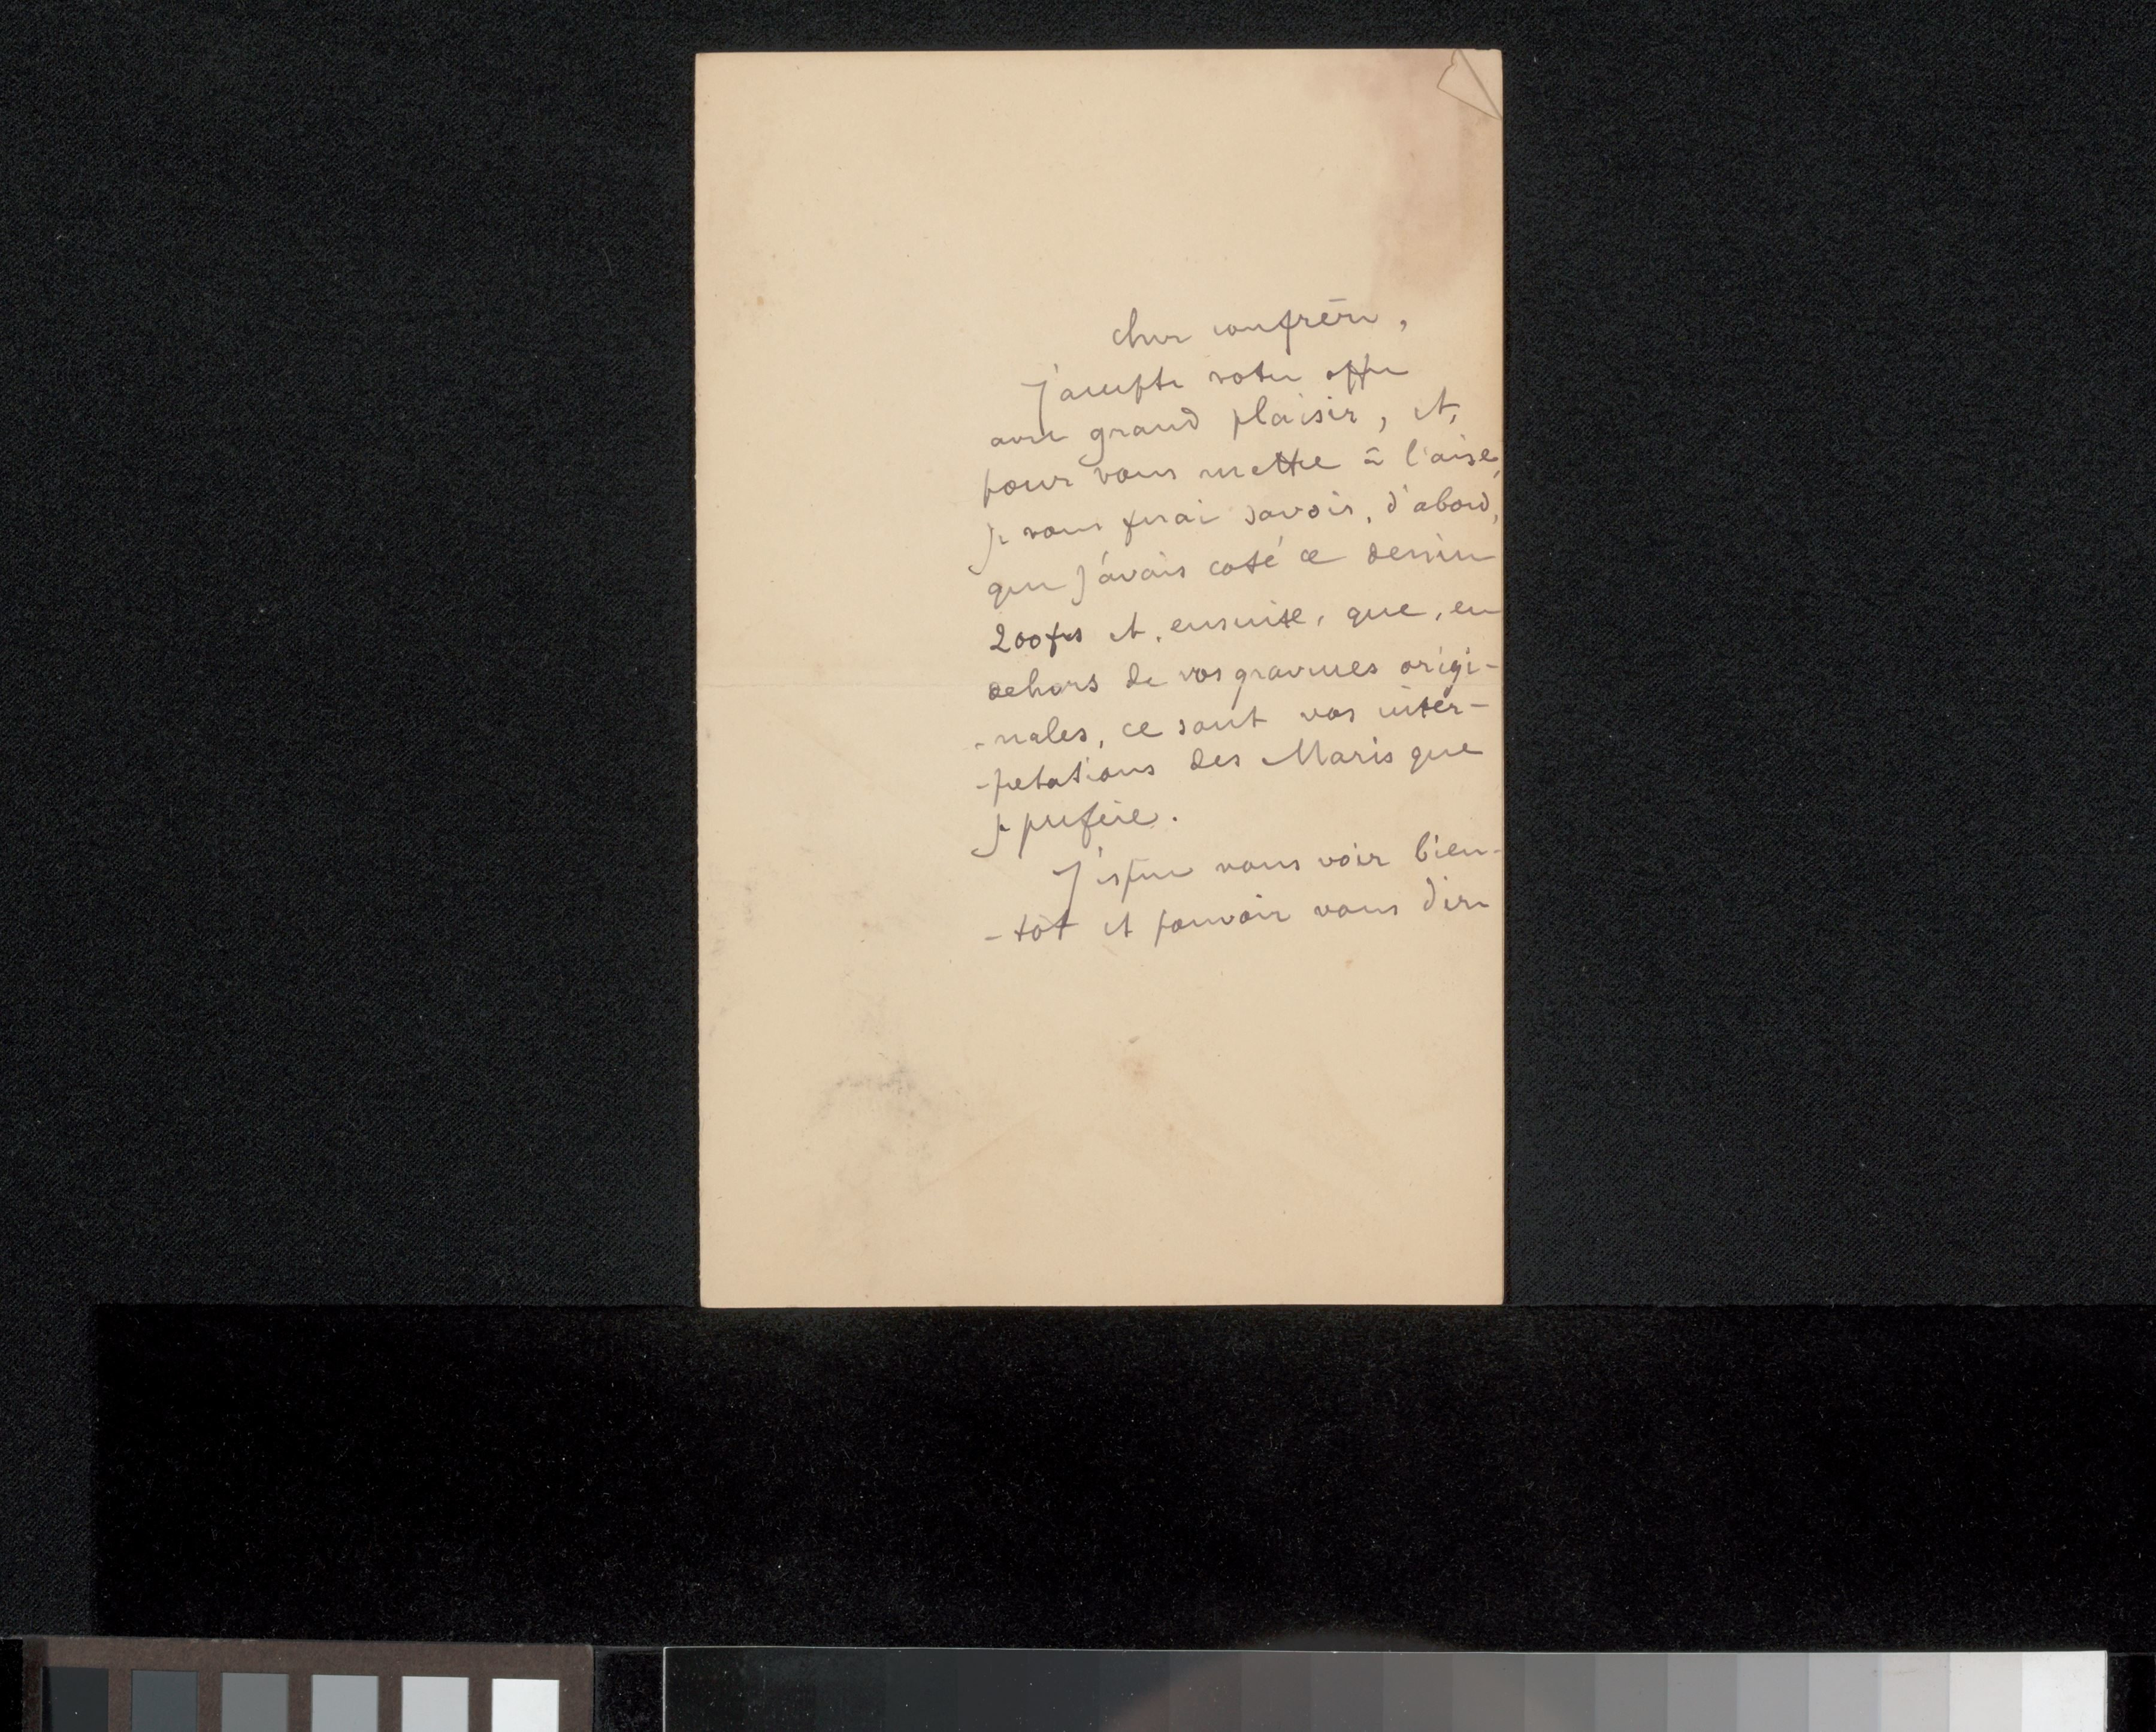 cher confrère,
J'accepte votre offre
avec grand plaisir, et,
pour vous mettre à l'aise,
je vous ferai savoir, d'abord,
que j'avais coté ce dessin
200frs et, ensuite, que, en
dehors de vos gravures origi-
-nales, ce sont vos inter-
-pretations des Maris que
je prefère.
J'espère vous voir bien-
-tôt et pouvoir vous dire